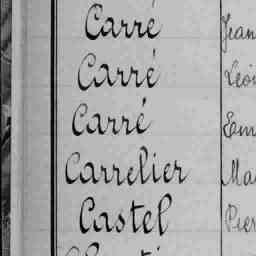 Carré Jean
Carré Léon
Carré
Carrelier
Castel